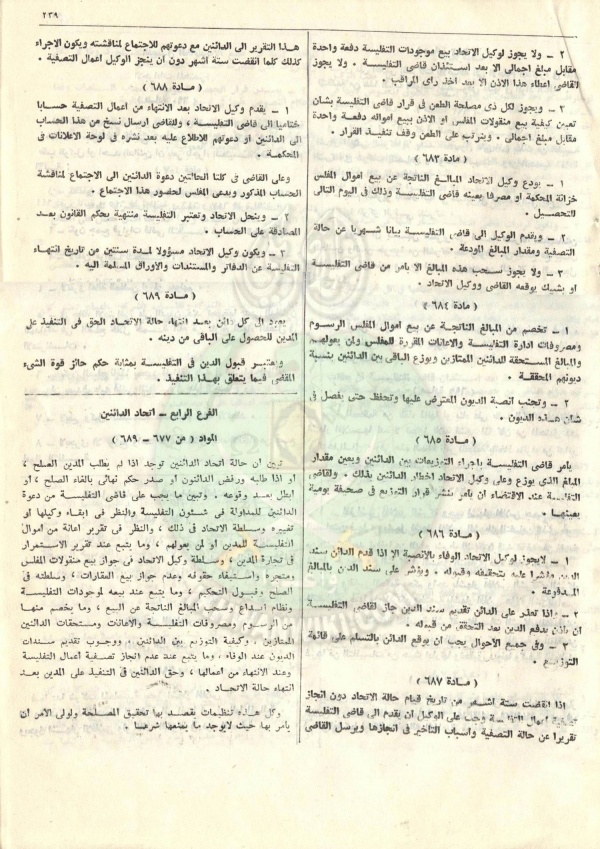 ٢٣٩
٢ - ولا يجوز لوكيل الاتحاد بيع موجودات التفليسة دفعة واحدة
مقابل مبلغ اجمالى الا بعد استئذان قاضى التفليسة . ولا يجوز
للقاضى اعطاء هذا الاذن الا بعد اخذ راى المراقب .
٣ - ويجوز لكل ذى مصلحة الطعن فى قرار قاضى التفليسة بشان
تعيين كيفية بيع منقولات المفلس او الاذن ببيع امواله دفعة واحدة
مقابل مبلغ اجمالى . ويترتب على الطعن وقف تنفيذ القرار .
( مادة ٦٨٣ )
١ - يودع وكيل الاتحاد المبالغ الناتجة عن بيع اموال المفلس
خزانة المحكمة او مصرفا يعينه قاضى التفليسة وذلك فى اليوم التالى
للتحصيل .
٢ - ويقدم الوكيل الى قاضى التفليسة بيانا شهريا عن حالة
التصفية ومقدار المبالغ المودعة .
٣ - ولا يجوز سحب هذه المبالغ الا بامر من قاضى التفليسة
او بشيك يوقعه القاضى ووكيل الاتحاد .
( مادة ٦٨٤ )
١ - تخصم من المبالغ الناتجة عن بيع اموال المفلس الرسوم
ومصروفات ادارة التفليسة والاعانات المقررة للمفلس ولن يعولهم
والمبالغ المستحقة للدائنين الممتازين ويوزع الباقى بين الدائنين بنسبة
ديونهم المحققة .
٢ - وتجنب انصبة الديون المعترض عليها وتحفظ حتى يفصل فى
شان هذه الديون .
( مادة ٦٨٥ )
يامر قاضى التفليسة باجراء التوزيعات بين الدائنين ويعين مقدار
المبلغ الذى يوزع وعلى وكيل الاتحاد اخطار الدائنين بذلك . ولقاضى
التفليسة عند الاقتضاء ان يامر بنشر قرار التوزيع فى صحيفة يومية
يعينها .
( مادة ٦٨٦ )
١ - لايجوز لوكيل الاتحاد الوفاء بالانصبة الا اذا قدم الدائن سند
الدين مؤشرا عليه بتحقيقه وقبوله . ويؤشر على سند الدين بالمبالغ
المدفوعة .
٢ - واذا تعذر على الدائن تقديم سند الدين جاز لقاضى التفليسة
ان ياذن بدفع الدين بعد التحقق من قبوله .
٣ - وفى جميع الاحوال يجب ان يوقع الدائن بالتسلم على قائمة
التوزيع .
( مادة ٦٨٧ )
اذا انقضت ستة اشهر من تاريخ قيام حالة الاتحاد دون انجاز
اعمال وجب على الوكيل ان يقدم الى قاضى التفليسة
تقريرا عن حالة التصفية واسباب التاخير فى انجازها ويرسل القاضى
هذا التقرير الى الدائنين مع دعوتهم للاجتماع لمناقشته ويكون الاجراء
كذلك كلما انقضت ستة اشهر دون ان ينجز الوكيل اعمال التصفية .
( مادة ٦٨٨ )
١ - يقدم وكيل الاتحاد بعد الانتهاء من اعمال التصفية حسابا
ختاميا الى قاضى التفليسة ، وللقاضى ارسال نسخ من هذا الحساب
الى الدائنين او دعوتهم للاطلاع عليه بعد نشره فى لوحة الاعلانات فى
المحكمة .
وعلى القاضى فى كلتا الحالتين دعوة الدائنين الى الاجتماع لمناقشة
الحساب المذكور ويدعى المفلس لحضور هذا الاجتماع .
٢ - وينحل الاتحاد وتعتبر التفليسة منتهية بحكم القانون بعد
المصادقة على الحساب .
٣ - ويكون وكيل الاتحاد مسؤولا لمدة سنتين من تاريخ انتهاء
التفليسة عن الدفاتر والمستندات والاوراق المسلمة اليه .
( مادة ٦٨٩ )
يعود الى كل دائن بعد انتهاء حالة الاتحاد الحق فى التنفيذ على
المدين للحصول على الباقى من دينه .
ويعتبر قبول الدين فى التفليسة بمثابة حكم حائز قوة الشىء
المقضى فيما يتعلق بهذا التنفيذ .
الفرع الرابع - اتحاد الدائنين
المواد ( من ٦٧٧ - ٦٨٩ )
تبين ان حالة اتحاد الدائنين توجد اذا لم يطلب المدين الصلح ،
او اذا طلبه ورفض الدائنون او صدر حكم نهائى بالغاء الصلح ، او
ابطل بعد وقوعه . وتبين ما يجب على قاضى التفليسة من دعوة
الدائنين للمداولة فى شئون التفليسة والنظر فى ابقاء وكيلها او
تغييره وسلطة الاتحاد فى ذلك ، والنظر فى تقرير اعانة من اموال
التفليسة للمدين او لمن يعولهم ، وما يتبع عند تقرير الاستمرار
فى تجارة المدين ، وسلطة وكيل الاتحاد فى جواز بيع منقولات المفلس
ومتجره واستيفاء حقوقه وعدم جواز بيع العقارات ، وسلطته فى
الصلح وقبول التحكيم ، وما يتبع عند بيعه لموجودات التفليسة
ونظام ايداع وسحب المبالغ الناتجة عن البيع ، وما يخصم منها
من الرسوم ومصروفات التفليسة والاعانات ومستحقات الدائنين
الممتازين ، وكيفية التوزيع بين الدائنين ، ووجوب تقديم سندات
الديون عند الوفاء ، وما يتبع عند عدم انجاز تصفية اعمال التفليسة
وعند الانتهاء من اعمالها ، وحق الدائنين فى التنفيذ على المدين بعد
انتهاء حالة الاتحاد .
وكل هذه تنظيمات يقصد بها تحقيق المصلحة ولولى الامر ان
يامر بها حيث لايوجد ما يمنعها شرعا .